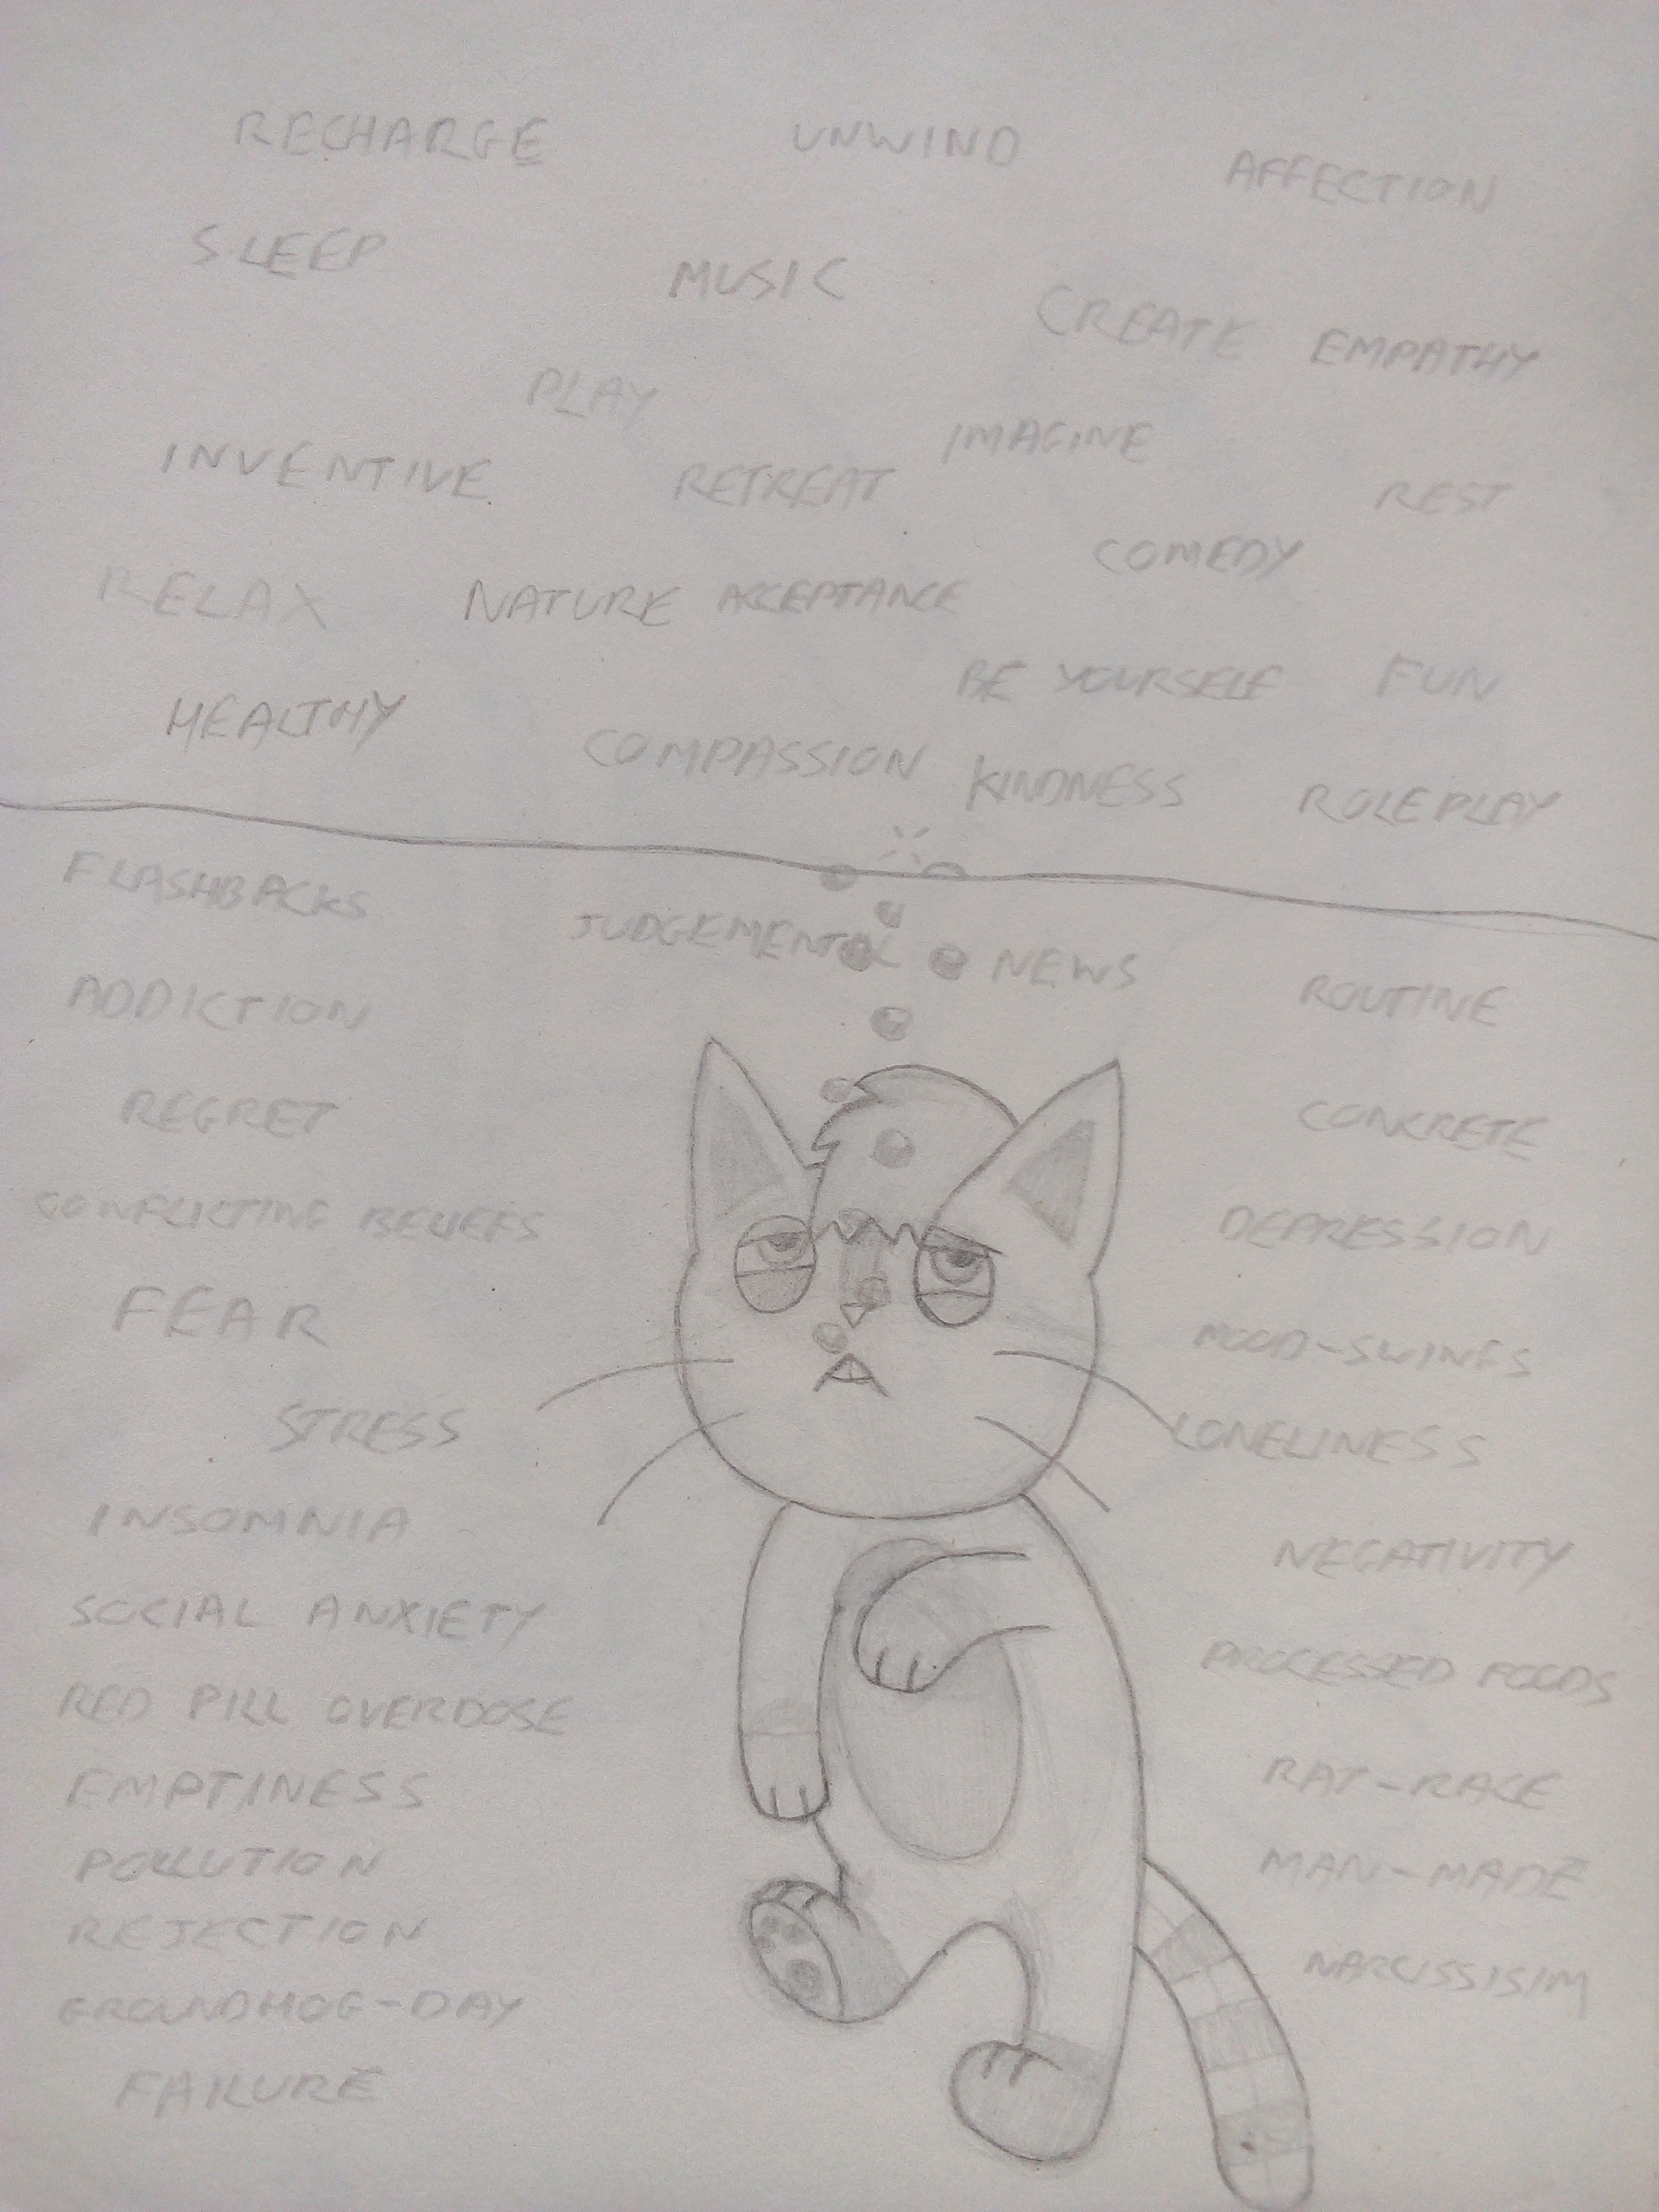 RECHARGE
UNWIND
AFFECTION
SLEEP
MUSIC
CREATE
EMPATHY
PLAY
IMAGINE
INVENTIVE
RETREAT
REST
COMEDY
RELAX
NATURE
ACCEPTANCE
BE YOURSELF
FUN
HEALTHY
COMPASSION
KINDNESS
ROLEPLAY
FLASHBACKS
JUDGEMENTAL
NEWS
ROUTINE
ADDICTION
REGRET
CONCRETE
CONFLICTING BELIEFS
DEPRESSION
FEAR
MOOD-SWINGS
STRESS
LONELINESS
INSOMNIA
NEGATIVITY
SOCIAL ANXIETY
PROCESSED FOODS
RED PILL OVERDOSE
EMPTINESS
RAT-RACE
POLLUTION
MAN-MADE
REJECTION
NARCISSISIM
GROUNDHOG-DAY
FAILURE